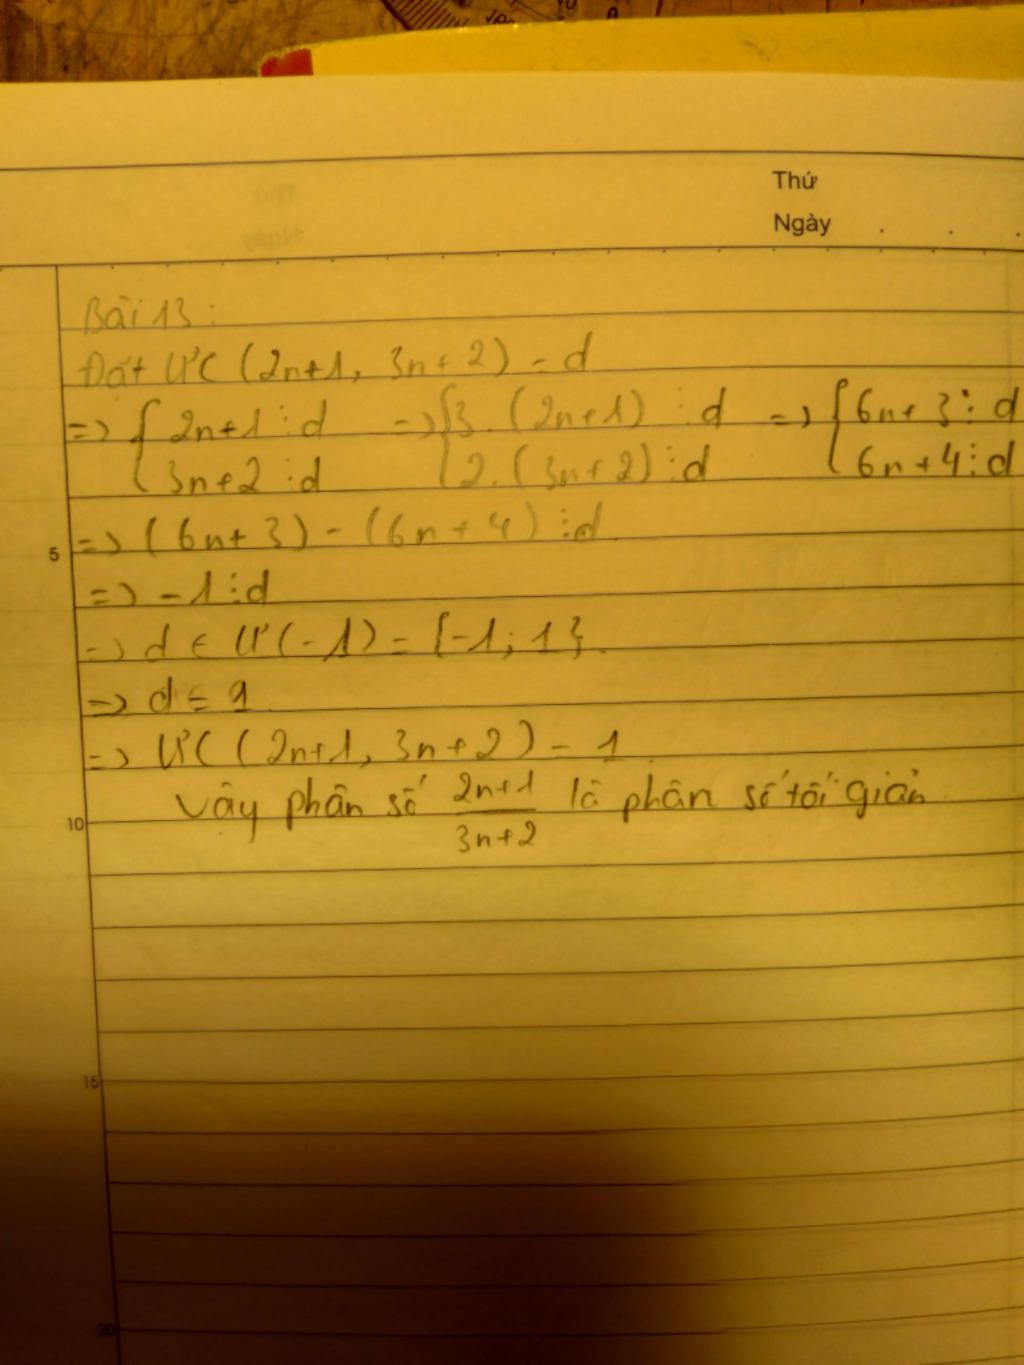 Thứ
Ngày
Bài 13:
Đặt ƯC (2n+1, 3n+2) = d
=> { 2n+1 ⋮ d => { 3.(2n+1) ⋮ d => { 6n+3 ⋮ d
3n+2 ⋮ d 2.(3n+2) ⋮ d 6n+4 ⋮ d
5
=> (6n+3) - (6n+4) ⋮ d
=> -1 ⋮ d
=> d ∈ Ư(-1) = {-1; 1}.
=> d = 1
=> ƯC (2n+1, 3n+2) = 1
10
Vậy phân số 2n+1/3n+2 là phân số tối giản
15
20